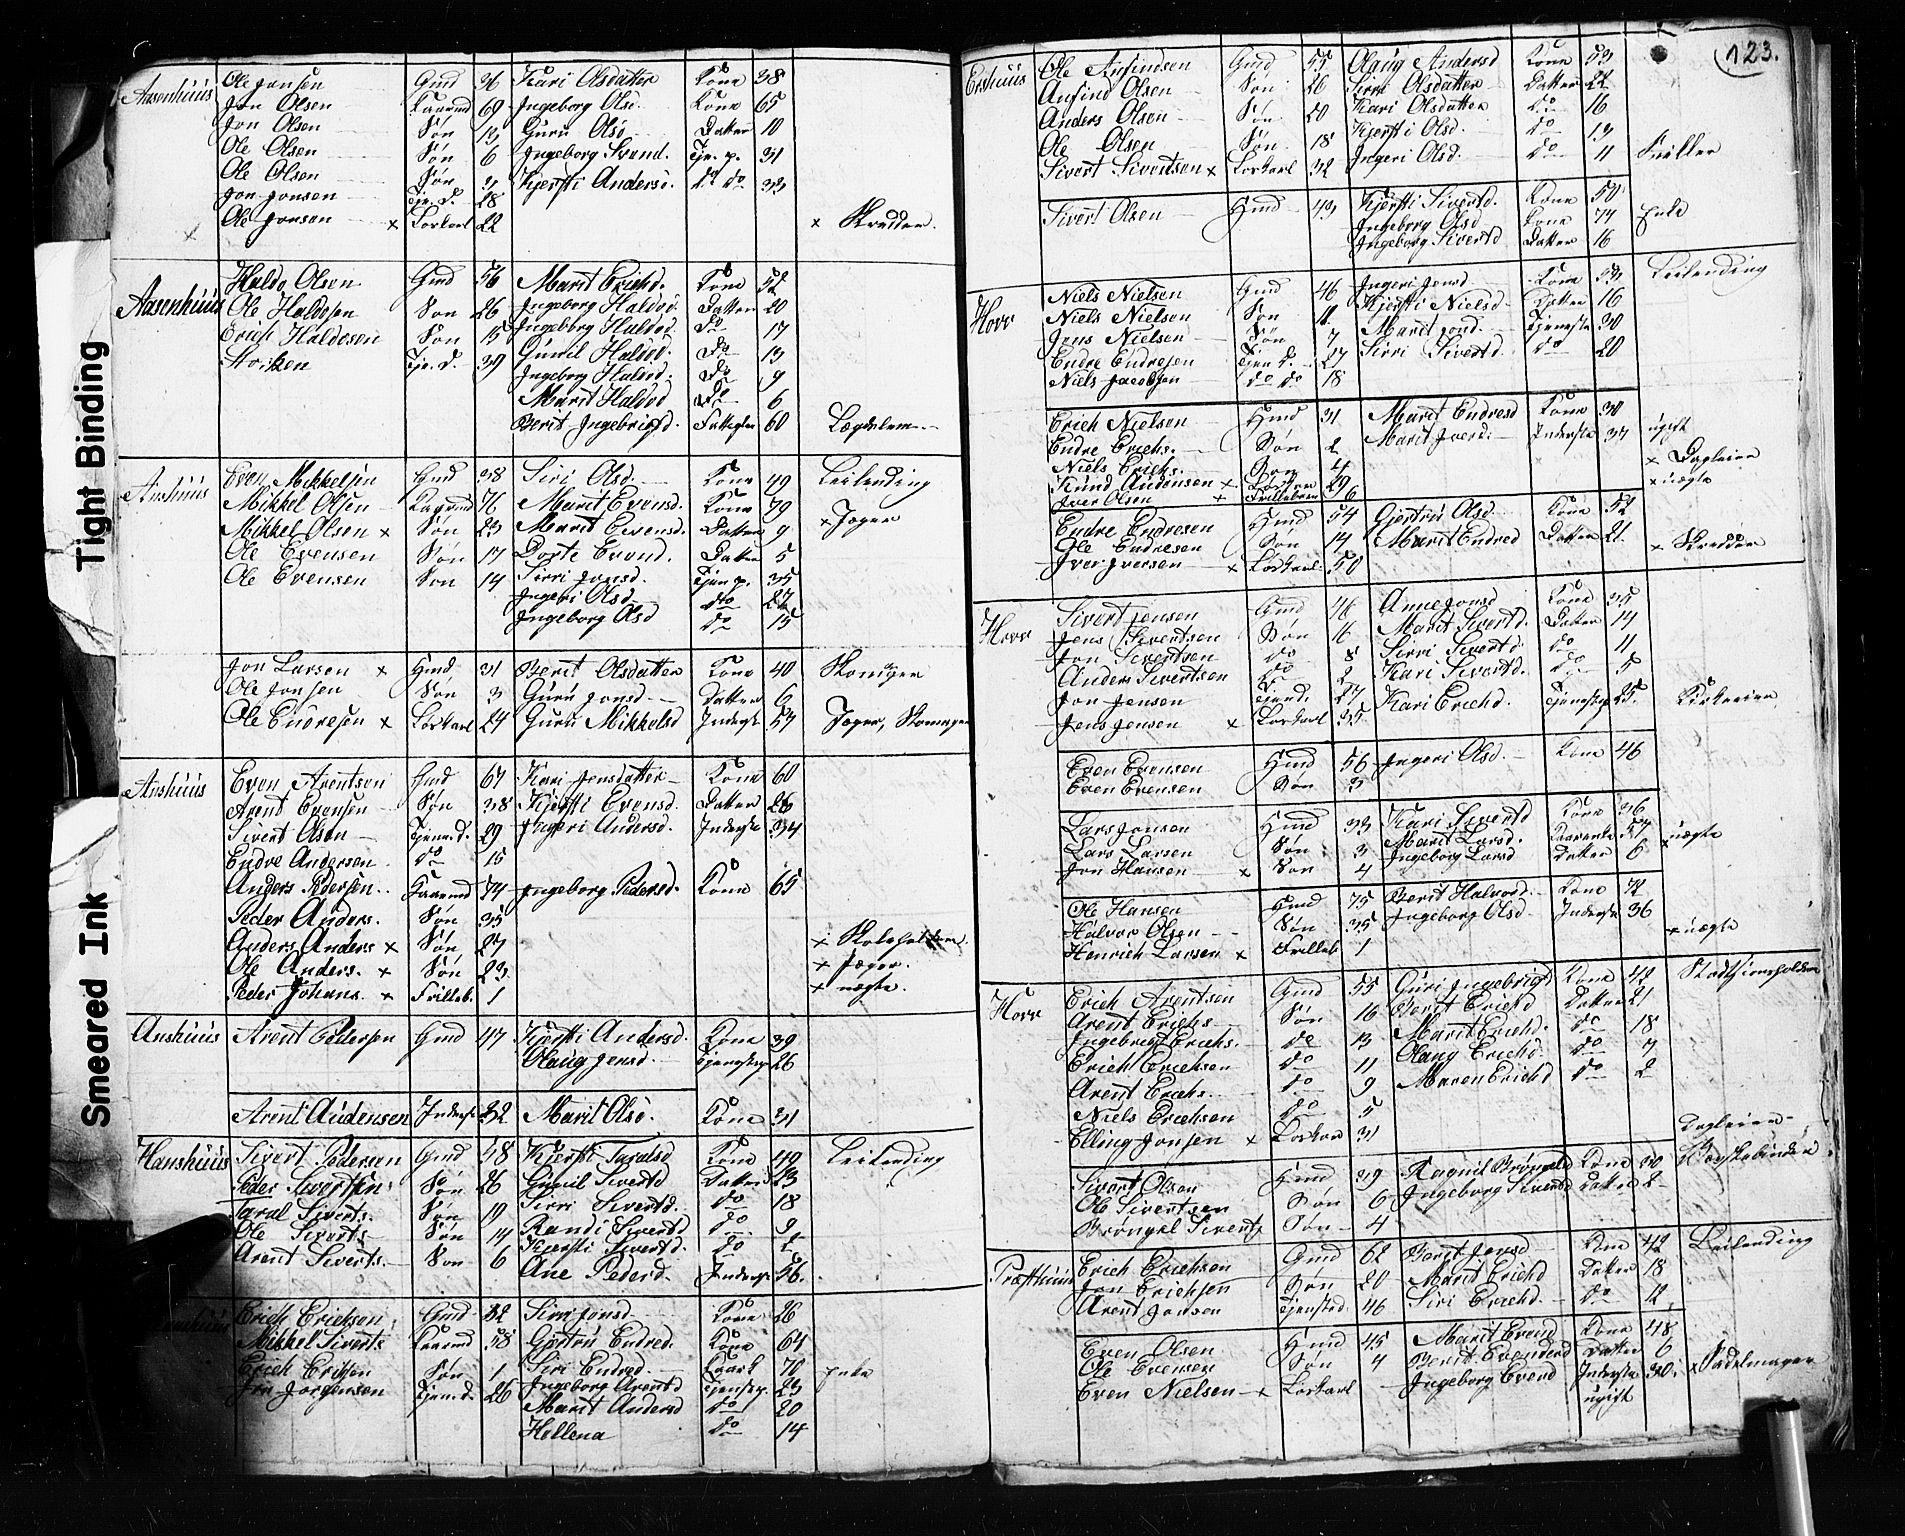 Tight Binding
Smeared Ink
Aasenhuus Ole Jonsen Gmd 36 Kari Olsdatter Kone 38
Jon Olsen Kaarmd 69 Ingeborg Olsd. Kone 65
Jon Olsen Søn 13 Guru Olsd Datter 10
Ole Olsen Søn 6 Ingeborg Svend. Tje. p. 31
Ole Olsen Søn 3 Kjersti Andersd. do do 33
Jon Jonsen Tje. D. 28
Ole Jonsen x Loskarl 22 x Skrædder
Aasenhuus Haldo Olsen Gmd 56 Marit Erichd. Kone 52
Ole Haldosen Søn 26 Ingeborg Haldod. Datter 20
Erich Haldosen Søn 15 Ingeborg Haldod. do 17
Tje. D. 39 Gunil Haldod. do 13
Ingeborg Haldod. do 9
Marit Haldod do 6
Berit Ingebrigtd. 60 Lægdslem
Anshuus Even Mikkelsen Gmd 38 Siri Olsd. Kone 49 Leilending
Mikkel Olsen Kaarmd 76 Marit Evensd. Kone 79
Mikkel Olsen x Søn 23 Marit Evensd. Datter 9 x Jæger
Ole Evensen Søn 17 Dorte Evend. Datter 5
Ole Evensen Søn 14 Sirri Jonsd. Tjen p. 35
Ingeri Olsd do 27
Ingeborg Olsd do 15
Jon Larsen x Hmd 31 Berit Olsdatter Kone 40 Skomager
Ole Jonsen Søn 3 Guru Jonsd. Datter 6
Ole Endresen x Loskarl 24 Guru Mikkelsd Inderst 57 Jæger, Skomager
Anshuus Even Arentsen Gmd 67 Kari Jensdatter Kone 60
Arent Evensen Søn 38 Kjersti Evensd. Datter 26
Sivert Olsen Tjene D. 29 Ingeri Andersd. Inderste 34
Endre Andersen do 15
Anders Pedersen Kaarmd 74 Ingeborg Pedersd. Kone 65
Peder Anders. Søn 35
Anders Anders x Søn 27 x Skoleholder
Ole Anders. x Søn 23 x Jæger.
Peder Johans. x Frilleb. 1 x uægte.
Anshuus Arent Pedersen Gmd 47 Kjersti Andersd. Kone 39
Olaug Jensd. Tjenestep 26
Arent Audensen Inderst 32 Marit Olsd. Kone 31
Hanshuus Sivert Pedersen Gmd 48 Kjersti Taralsd Kone 49 Leilending
Peder Sivertsen Søn 26 Gunil Sivertd Datter 23
Taral Siverts. Søn 19 Sirri Sivertd. do 18
Ole Siverts. Søn 14 Randi Sivertd do 9
Arent Siverts. Søn 6 Kjersti Sivertd. do 2
Ane Pederd. Inderst 56.
Erich Erichsen Gmd 32 Siri Jonsd Kone 26
Mikkel Siverts Kaarmd 58 Gjertru Endred. Kone 64
Erich Erichsen Søn 1 Siri Endred. 70 Enke
Jon Jørgensen Tjen D. 26 Ingeborg Arentd Tjenstp. 23
Marit Andersd do 20
Hellena do 14
123.
Ole Anfindsen Gmd 55 Olaug Andersd Kone 53
Anfind Olsen Søn 26 Sirri Olsdatter Datter 22
Anders Olsen Søn 20 Kari Olsdatter do 16
Ole Olsen Søn 18 Kjersti Olsd. do 13
Sivert Sivertsen x Loskarl 32 Ingeri Olsd. do 11
Sivert Olsen Hmd 43 Kjersti Sivertd. Kone 50
Ingeborg Olsd Kone 74 Enke
Ingeborg Sivertd Datter 16
Hovr Niels Nielsen Gmd 46 Ingeri Jensd Kone 53 Leilending
Niels Nielsen Søn 11 Kjersti Nielsd Datter 16
Jens Nielsen Søn 7 Marit Jond. Tjeneste 30
Endre Endresen Tjen D. 27 Sirri Sivertd. do 20
Niels Jacobsen do do 18
Erich Nielsen Hmd 31 Marit Endresd Kone 30
Endre Erichs. Søn 2 Marit Iverd. Inderste 37 ugift
Niels Erichs. Søn 4 x Dagleier
Knud Audensen x Loskar 29 x uægte
Iver Olsen x Frillebarn 6
Endre Endresen Hmd 54 Gjertru Olsd. Kone 52
Ole Endresen Søn 14 Marit Endred Datter 21
Iver Iversen x Loskarl 50 x Skrædder
Hovr Sivert Jensen Gmd 46 Anne Jonsd Kone 35
Jens Sivertsen Søn 16 Marit Sivertd. Datter 14
Jon Sivertsen do 8 Sirri Sivertd do 11
Anders Sivertsen do 2 Kari Sivertd. do 5
Jon Jensen Tjen D. 27 Kari Erichd. Tjenestep 25.
Jens Jensen x Loskarl 35
Even Evensen Hmd 56 Ingeri Olsd. Kone 46
Even Evensen Søn 3
Lars Jonsen Hmd 33 Kari Sivertd Kone 36
Lars Larsen Søn 3 Marit Larsd. 57 uægte
Jon Hansen x Søn 4 Ingeborg Larsd Datter 6
Ole Hansen Hmd 75 Berit Halvord. Kone 72
Halvor Olsen Søn 35 Ingeborg Olsd Inderste 36
Henrich Larsen x Frilleb 1 x uægte
Hovr Erich Arentsen Gmd 55 Guri Ingebrigtd Kone 42
Arent Erichs. Søn 16 Berit Erichd Datter 21
Ingebrigt Erichs. do 13 Marit Erichd. do 18
Erich Erichsen do 11 Olaug Erichd. do 7
Arent Erichs. do 9 Maren Erichd do 2
Niels Erichsen do 5
Elling Jonsen x Loskarl 31 Dagleier
Sivert Olsen Hmd 39 Ragnil Brøngeld Kone 30
Ole Sivertsen Søn 6 Ingeborg Sivertd Datter 2
Brøngel Siverts Søn 4
Præsthuus Erich Erichsen Gmd 62 Berit Jensd Kone 42 Leilending
Jon Erichsen Søn 20 Marit Erichd Datter 18
Arent Jonsen 46 Siri Erichd. do 12
Even Olsen Hmd 45 Marit Evend Kone 48
Ole Evensen Søn 4 Berit Evend Datter 6
Even Nielsen x Loskarl Ingeborg Evend Inderste 30. x Sadelmager
ugift